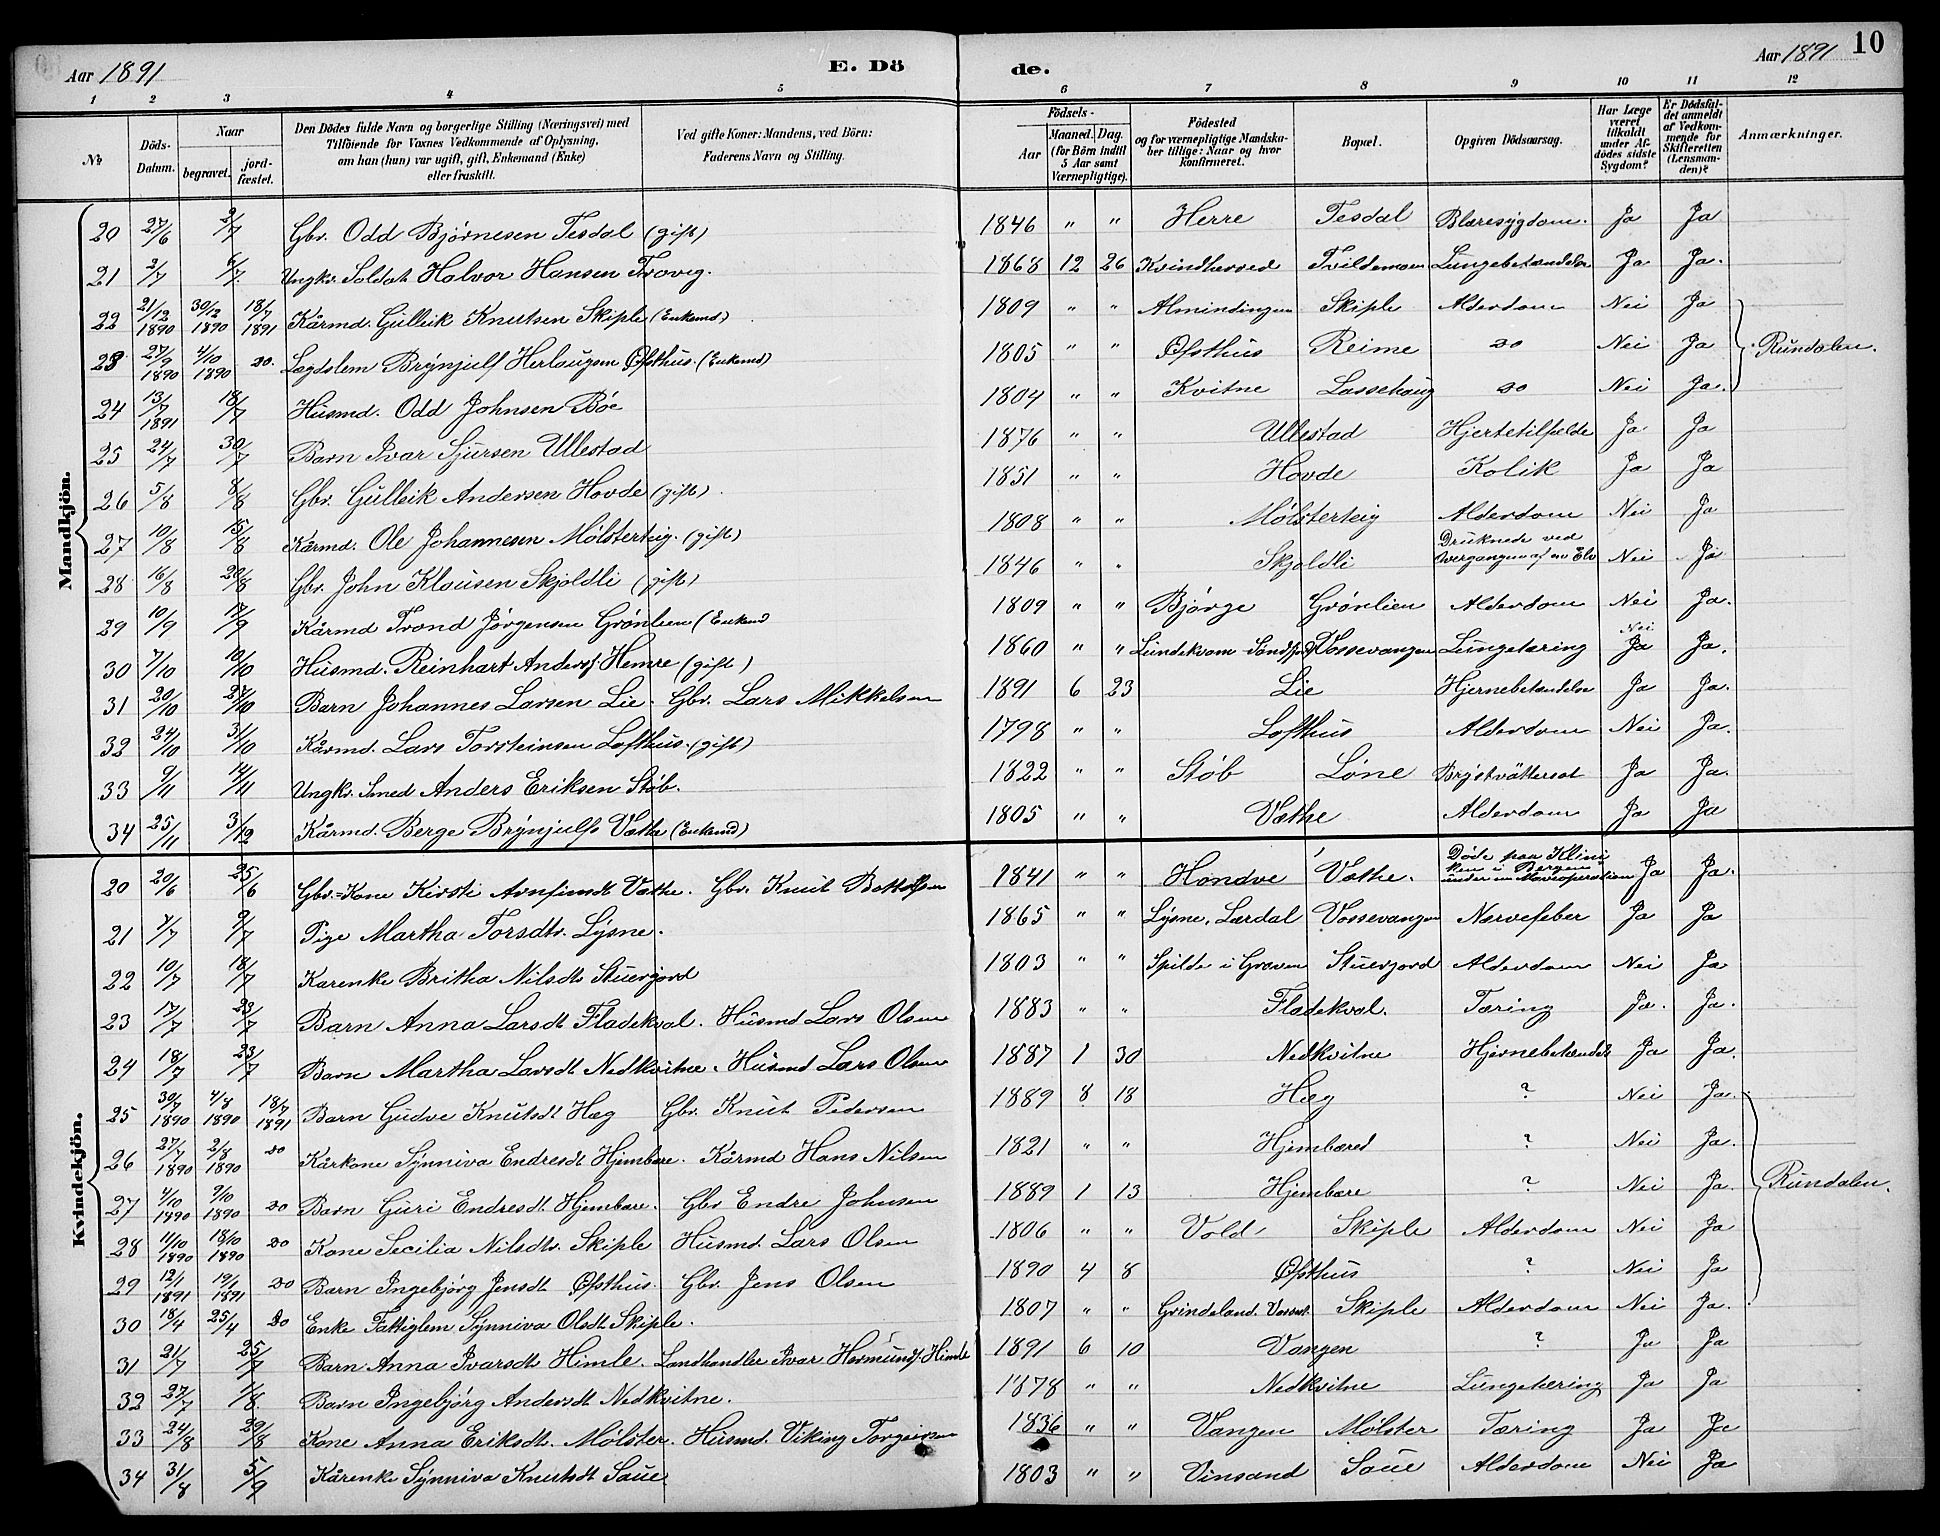 Aar 1891 E. Dö de. Aar 1891 10
1 2 3 4 5 6 7 8 9 10 11 12
№ Döds-Datum. Naar begravet. jord-fæstet. Den Dödes fulde Navn og borgerlige Stilling (Næringsvei) med Tilföiende for Voxnes Vedkommende af Oplysning, om han (hun) var ugift, gift, Enkemand (Enke) eller fraskilt. Ved gifte Koner: Mandens, ved Börn: Faderens Navn og Stilling. Födsels- Aar Maaned. Dag. (for Börn indtil 5 Aar samt Værnepligtige). Födested og for værnepligtige Mandskaber tillige: Naar og hvor Konfirmeret. Bopæl. Opgiven Dödsaarsag. Har Læge været tilkaldt under Afdödes sidste Sygdom? Er Dödsfaldet anmeldt af Vedkommende for Skifteretten (Lensmanden)? Anmærkninger.
Mandkjön.
20 27/6 2/7 Gbr. Odd Bjørnesen Tesdal (gift) 1846 " " Herre Tesdal Blæresygdom. Ja Ja
21 2/7 6/7 Ungkr. Soldat Halvor Hansen Trovig. 1868 12 26 Kvindherred Tvildemoen Lungebetændelse Ja Ja.
22 21/12 1890 30/12 1890 18/7 1891 Kårmd. Gulleik Knutsen Skiple (Enkemd) 1809 " " Almindingen Skiple Alderdom Nei Ja
23 27/9 1890 4/10 1890 do. Lægdslem Brynjulf Herlaugsen Øfsthus (Enkemd) 1805 " " Øfsthus Reime do Nei Ja Rundalen.
24 13/7 1891 18/7 Husmd. Odd Johnsen Bøe 1804 " " Kvitne Lassehaug do Nei Ja.
25 24/7 30/7 Barn Ivar Sjursen Ullestad 1876 " " Ullestad Hjertetilfælde Ja Ja
26 5/8 8/8 Gbr. Gulleik Andersen Hovde (gift) 1851 " " Hovde Kolik Ja Ja
27 10/8 15/8 Kårmd. Ole Johannesen Mølsterteig. (gift) 1808 " " Mølsterteig Alderdom Nei Ja
28 16/8 20/8 Gbr. John Klausen Skjoldli (gift) 1846 " " Skjoldli Druknede ved Overgangen af en Elv Nei Ja
29 10/9 17/9 Kårmd Trond Jørgensen Grønlien (Enkemd 1809 " " Bjørge Grønlien Alderdom Nei Ja.
30 7/10 10/10 Husmd. Reinhart Anders. Hemre (gift) 1860 " " Lundekvam Vossevangen Lungetæring Nei Ja Ja.
31 20/10 27/10 Barn Johannes Larsen Lie. Gbr. Lars Mikkelsen 1891 6 23 Lie Hjernebetændelse Ja Ja.
32 24/10 31/10 Kårmd. Lars Torsteinsen Lofthus. (gift) 1798 " " Lofthus Alderdom Nei Ja.
33 9/11 14/11 Ungkr. Smed Anders Eriksen Støb. 1822 " " Støb Løne Brystvåttersot Ja Ja.
34 25/11 3/12 Kårmd. Berge Brynjulfs Væthe (Enkemd) 1805 " " Væthe Alderdom Ja Ja
Kvindekjön.
20 20/6 25/6 Gbr.=Kone Kirsti Arnfinnsdt Væthe. Gbr. Knut Bottolfsen 1841 " " Hondve Væthe. Døde paa Kliniken i Bergen under en Maveoperation Ja Ja.
21 4/7 9/7 Pige Martha Torsdtr. Lysne. 1865 " " Lysne, Lærdal Vossevangen Nervefeber Ja Ja
22 10/7 18/7 Karenke Britha Nilsdt Stuerjord 1803 " " Spilde i Graven Stuerjord Alderdom Nei Ja
23 17/7 23/7 Barn Anna Larsdt Fladekval. Husmd Lars Olsen 1883 " " Fladekval. Tæring Ja. Ja.
24 18/7 23/7 Barn Martha Larsdt Nedkvitne. Husmd Lars Olsen 1887 1 30 Nedkvitne Hjernebetændels Ja Ja.
25 30/7 1890 4/8 1890 18/7 1891 Barn Gudve Knutsdt Hæg Gbr. Knut Pedersen 1889 8 18 Hæg ? Nei Ja.
26 27/7 1890 2/8 1890 do Kårkone Synniva Endresdt Hjembare. Kårmd Hans Nilsen 1821 " " Hjembared ? Nei Ja.
27 4/10 1890 9/10 1890 do Barn Guri Endresdt Hjembare. Gbr Endre Johnsen 1889 1 13 Hjembare ? Nei Ja. Rundalen.
28 11/10 1890 18/10 1890 do Kone Secilia Nilsdtr. Skiple Husmd. Lars Olsen 1806 " " Vold Skiple Alderdom Nei Ja
29 12/1 1891 19/1 1891 do Barn Ingebjørg Jensdt Øfsthus. Gbr. Jens Olsen 1890 4 8 Øfsthus ? Nei Ja
30 18/4 25/4 do Enke Fattiglem Synniva Olsdt Skiple. 1807 " " Grindeland Skiple Alderdom Nei Ja.
31 21/7 25/7 Barn Anna Ivarsdt Himle. Landhandler Ivar Hermunds. Himle 1891 6 10 Vangen ? Ja Ja
32 27/7 1/8 Barn Ingebjørg Andersdt Nedkvitne. 1878 " " Nedkvitne Lungetæring Ja Ja
33 24/8 29/8 Kone Anna Eriksdt. Mølster. Husmd. Viking Torgeirsen 1836 " " Vangen Mølster Tæring Ja Ja
34 31/8 5/9 Kårenke Synniva Knutsdt Saue. 1803 " " Vinsand Saue Alderdom Nei Ja